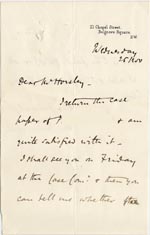 21 Chapel Street,
Belgrave Square,
S.W.
Wednesday
25 Nov
Dear Mr Horsley -
I return the case
paper of & am
quite satisfied with it -
I shall see you on Friday
at the Case Comee & then you
can tell me whether